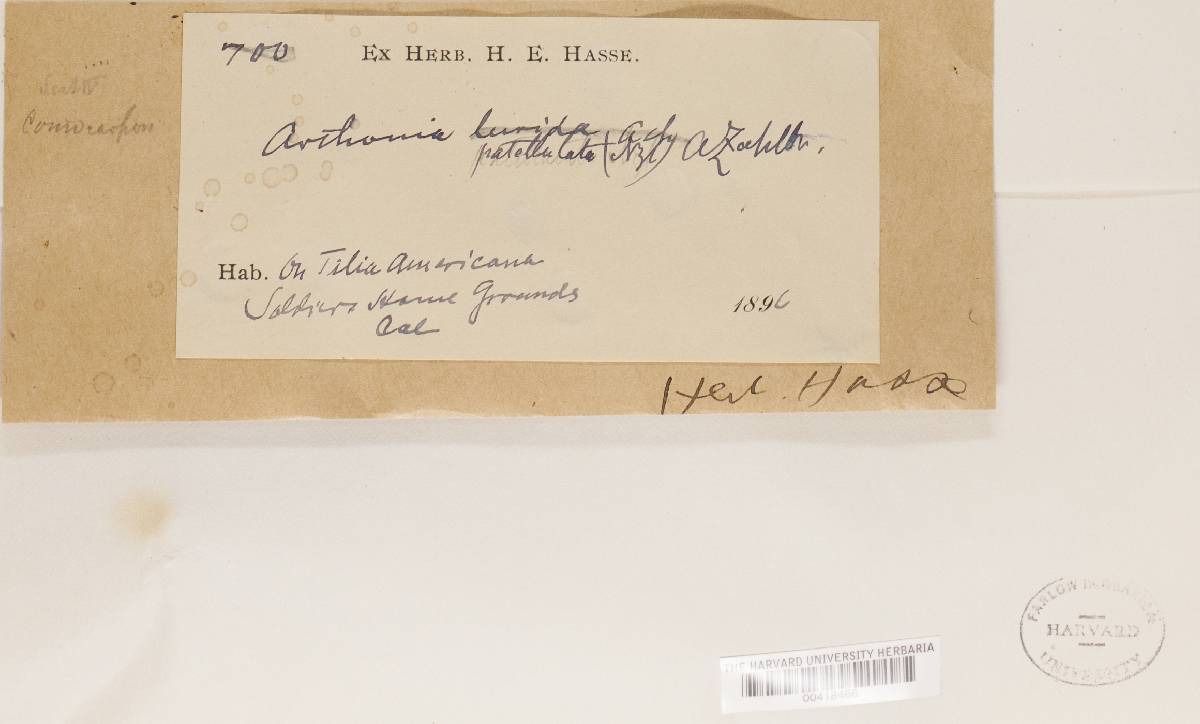 700 EX HERB. H. E. HASSE.
Arthonia lurida Ach
patellulata (Nyl) A Zahlbr.
Hab. On Tilia Americana
Soldiers Home Grounds
Cal
1896
Coniocarpon
Herb. Hasse
THE HARVARD UNIVERSITY HERBARIA
FARLOW HERBARIUM
HARVARD
UNIVERSITY